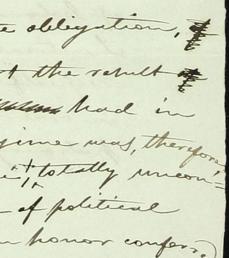 obligation,
the result
had in
was, therefore
totally uncon-
of political
honor confer